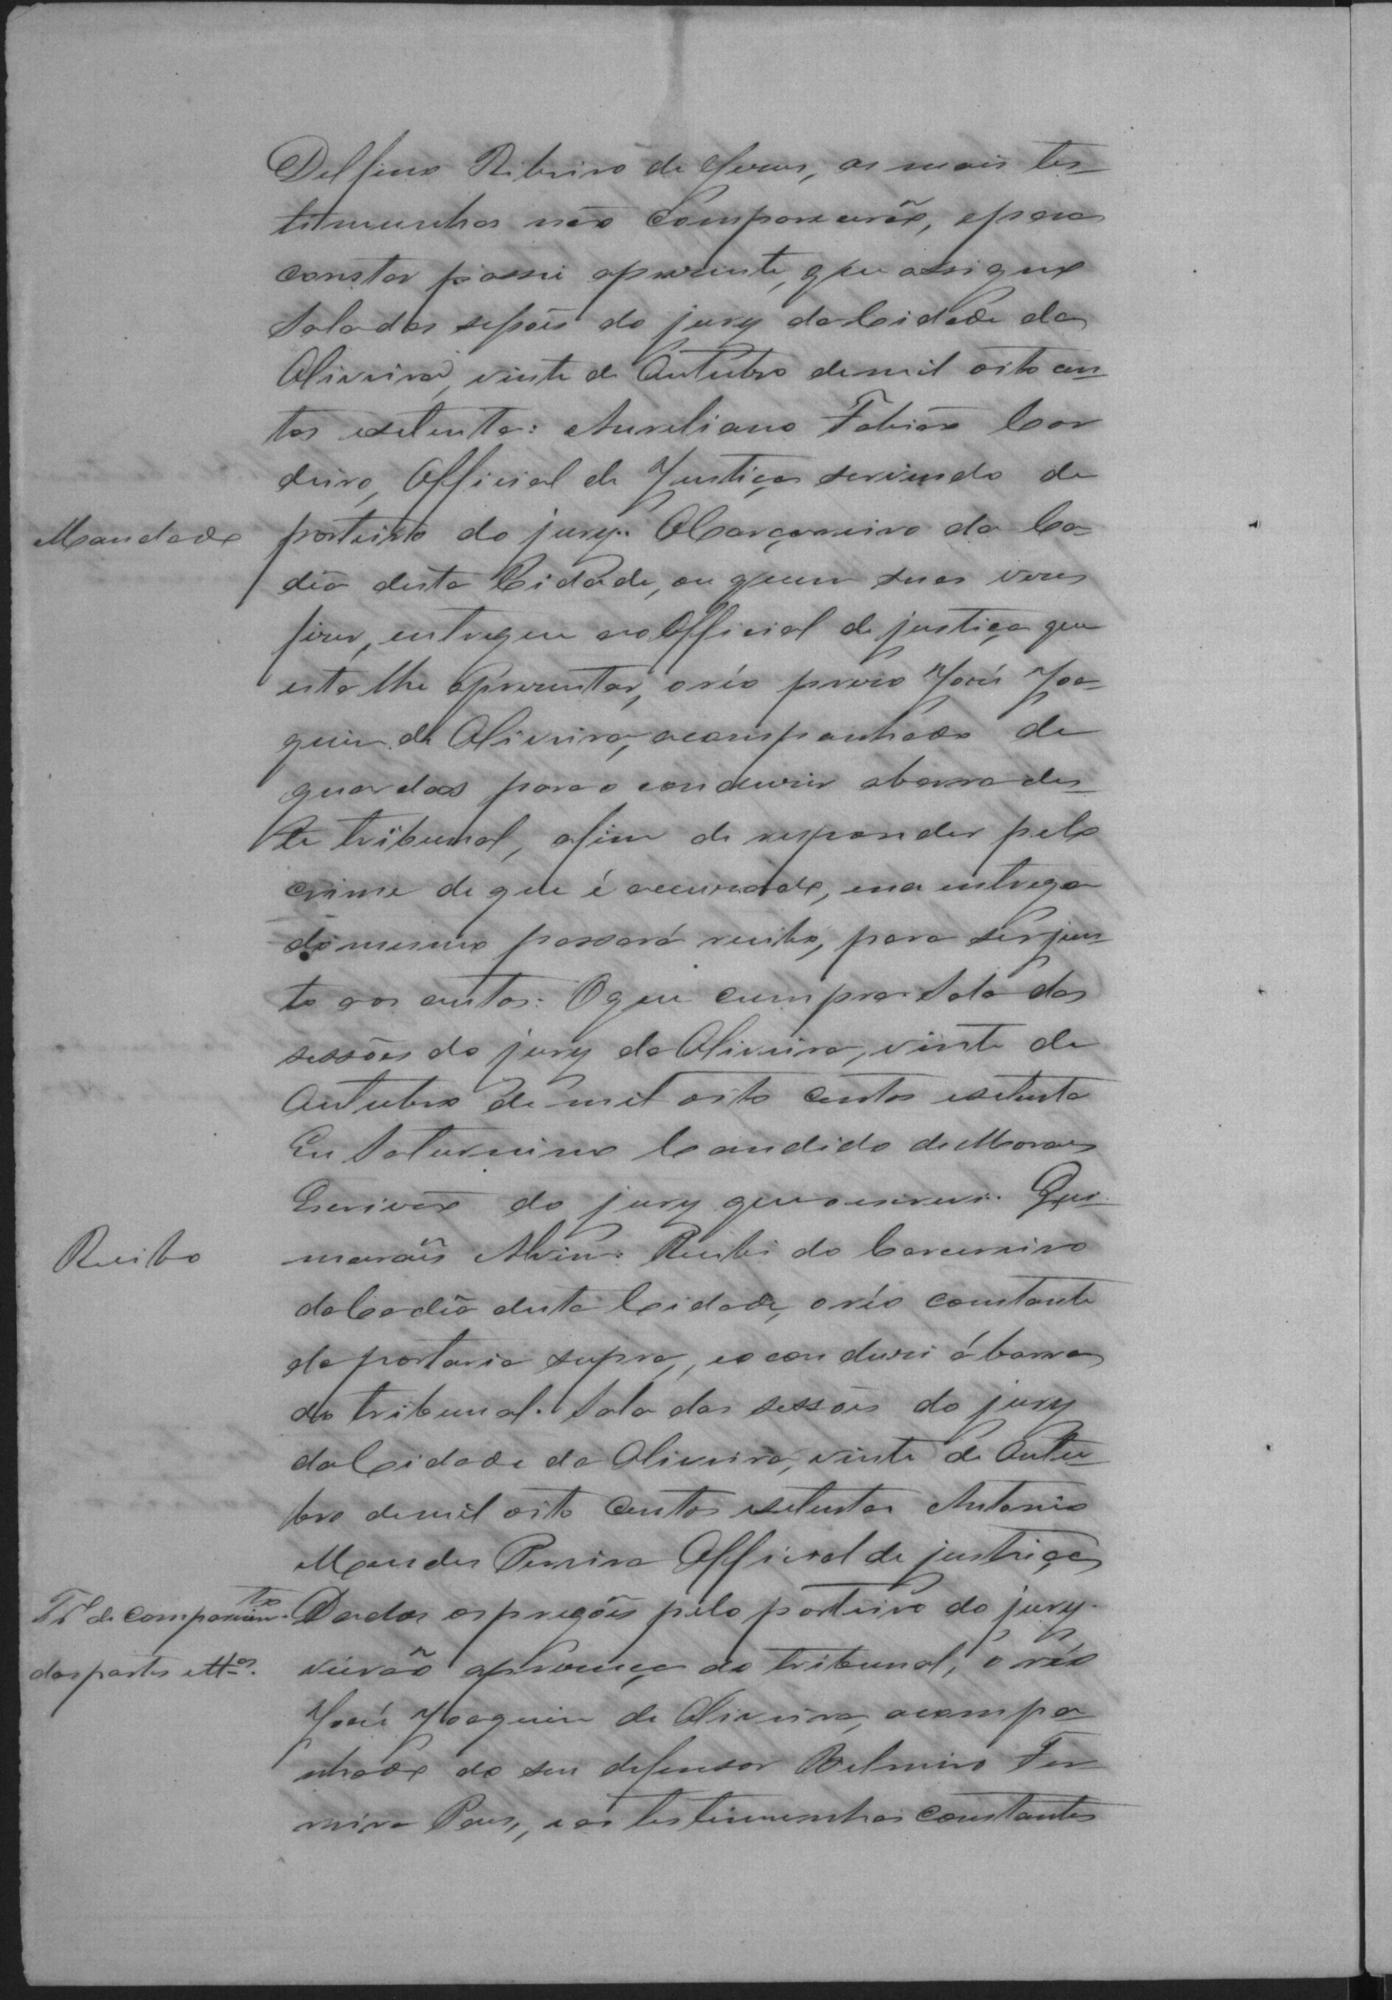 Delfino Ribeiro de Jesus, as mais tes-
timunhas não comparecerão, e para
constar passei a prezente, que assigno
Sala das sessões do jury da Cidade da
Oliveira, vinte de Outubro de mil oito cen-
tos e setenta: Aureliano Fabião Cor
deiro, Official de Justiça servindo de
Mandado porteiro do jury: O Carcereiro da Ca-
dêa desta Cidade, ou quem suas vezes
fizer, entregue ao Official de justiça que
esta lhe aprezentar, o réo prezo José Joa-
quim de Oliveira, acompanhado de
guardas para o conduzir a barra des-
te tribunal, afim de responder pelo
crime de que é accuzado, e na entrega
do mesmo passará recibo, para ser jun-
to aos autos: O que cumpra: Sala das
sessões do jury da Oliveira, vinte de
Outubro de mil oito centos e setenta
Eu Saturnino Candido de Moraes
Escrivão do jury que o escrevi. Gui-
Recibo marães Alvim: Recebi do Carcereiro
da Cadêa desta Cidade, o réo constante
da portaria supra, e o conduzi á barra
do tribunal. Sala das sessões do jury
da Cidade da Oliveira, vinte de Outu-
bro de mil oito centos e setenta Antonio
Mendes Pereira Official de justiça
Tr.º de comparecim.to Dados os pregões pelo porteiro do jury
das partes e tt.as vierão a prezença do tribunal, o réo
José Joaquim de Oliveira, acompa-
nhado do seu defensor Belmiro Fer
reira Paes, e as testimunhas constantes